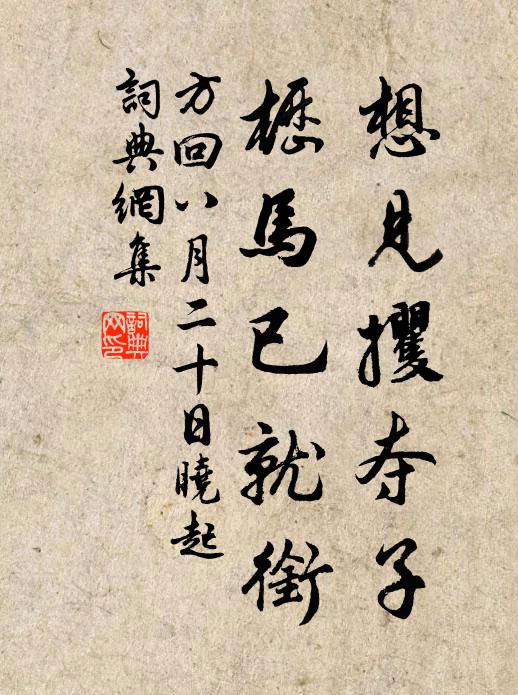 想見攫夺子
櫪馬已就銜
方回八月二十日曉起
詞典網集
詞典網印